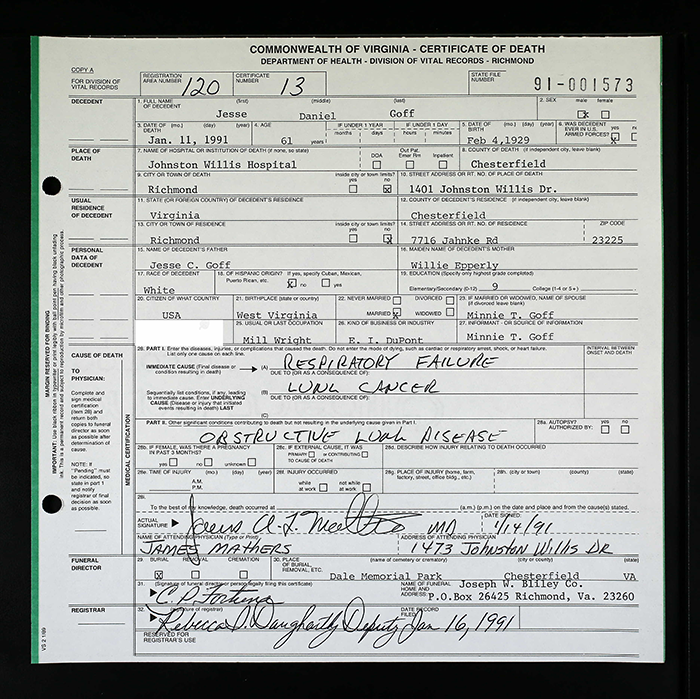 COMMONWEALTH OF VIRGINIA - CERTIFICATE OF DEATH
DEPARTMENT OF HEALTH - DIVISION OF VITAL RECORDS - RICHMOND
COPY A
FOR DIVISION OF VITAL RECORDS
REGISTRATION AREA NUMBER 120 CERTIFICATE NUMBER 13 STATE FILE NUMBER 91-001573
DECEDENT 1. FULL NAME OF DECEDENT (first) (middle) (last) 2. SEX male female
Jesse Daniel Goff x
3. DATE OF DEATH (mo.) (day) (year) 4. AGE IF UNDER 1 YEAR IF UNDER 1 DAY 5. DATE OF BIRTH (mo.) (day) (year) 6. WAS DECEDENT EVER IN U.S. ARMED FORCES? yes no
months days hours minutes
Jan. 11, 1991 61 years Feb 4,1929
PLACE OF DEATH 7. NAME OF HOSPITAL OR INSTITUTION OF DEATH (if none, so state) DOA Out Pat. Emer Rm Inpatient 8. COUNTY OF DEATH (if independent city, leave blank)
Johnston Willis Hospital Chesterfield
9. CITY OR TOWN OF DEATH inside city or town limits? yes no 10. STREET ADDRESS OR RT. NO. OF PLACE OF DEATH
Richmond x 1401 Johnston Willis Dr.
USUAL RESIDENCE OF DECEDENT 11. STATE (OR FOREIGN COUNTRY) OF DECEDENT'S RESIDENCE 12. COUNTY OF DECEDENT'S RESIDENCE (if independent city, leave blank)
Virginia Chesterfield
13. CITY OR TOWN OF RESIDENCE inside city or town limits? yes no 14. STREET ADDRESS OR RT. NO. OF RESIDENCE ZIP CODE
Richmond x 7716 Jahnke Rd 23225
PERSONAL DATA OF DECEDENT 15. NAME OF DECEDENT'S FATHER 16. MAIDEN NAME OF DECEDENT'S MOTHER
Jesse C. Goff Willie Epperly
17. RACE OF DECEDENT 18. OF HISPANIC ORIGIN? If yes, specify Cuban, Mexican, Puerto Rican, etc. 19. EDUCATION (Specify only highest grade completed)
White x no yes Elementary/Secondary (0-12) 9 College (1-4 or 5+)
20. CITIZEN OF WHAT COUNTRY 21. BIRTHPLACE (state or country) 22. NEVER MARRIED DIVORCED 23. IF MARRIED OR WIDOWED, NAME OF SPOUSE (if divorced leave blank)
USA West Virginia MARRIED x WIDOWED Minnie T. Goff
25. USUAL OR LAST OCCUPATION 26. KIND OF BUSINESS OR INDUSTRY 27. INFORMANT - OR SOURCE OF INFORMATION
Mill Wright E. I. DuPont Minnie T. Goff
MARGIN RESERVED FOR BINDING
CAUSE OF DEATH
28. PART I. Enter the diseases, injuries, or complications that caused the death. Do not enter the mode of dying, such as cardiac or respiratory arrest, shock, or heart failure. List only one cause on each line.
INTERVAL BETWEEN ONSET AND DEATH
IMMEDIATE CAUSE (Final disease or condition resulting in death) (A) RESPIRATORY FAILURE
DUE TO (OR AS A CONSEQUENCE OF):
Sequentially list conditions, if any, leading to immediate cause. Enter UNDERLYING CAUSE (Disease or injury that initiated events resulting in death) LAST (B) LUNG CANCER
DUE TO (OR AS A CONSEQUENCE OF):
(C)
TO PHYSICIAN:
Complete and sign medical certification (item 28) and return both copies to funeral director as soon as possible after determination of cause.
NOTE: If "Pending" must be indicated, so state in part 1 and notify registrar of final decision as soon as possible.
MEDICAL CERTIFICATION
PART II. Other significant conditions contributing to death but not resulting in the underlying cause given in Part I.
OBSTRUCTIVE LUNG DISEASE
28a. AUTOPSY? yes no
AUTHORIZED BY:
28b. IF FEMALE, WAS THERE A PREGNANCY IN PAST 3 MONTHS? yes no unknown
28c. IF EXTERNAL CAUSE, IT WAS PRIMARY or CONTRIBUTING TO CAUSE OF DEATH
28d. DESCRIBE HOW INJURY RELATING TO DEATH OCCURRED
28e. TIME OF INJURY (mo.) (day) (year) A.M. P.M.
28f. INJURY OCCURRED while at work not while at work
28g. PLACE OF INJURY (home, farm, factory, street, office bldg., etc.)
28h. (city or town) (county) (state)
28i. To the best of my knowledge, death occurred at (a.m.) (p.m.) on the date and place and from the cause(s) stated.
ACTUAL SIGNATURE MD DATE SIGNED: 1/14/91
NAME OF ATTENDING PHYSICIAN (Type or Print) ADDRESS OF ATTENDING PHYSICIAN
JAMES MATHERS 1473 JOHNSTON WILLIS DR
FUNERAL DIRECTOR 29. BURIAL REMOVAL CREMATION 30. PLACE OF BURIAL, REMOVAL, ETC. (name of cemetery or crematory) (city or county) (state)
x Dale Memorial Park Chesterfield VA
31. (Signature of funeral director or person legally filing this certificate) NAME OF FUNERAL HOME AND ADDRESS: Joseph W. Bliley Co.
P.O.Box 26425 Richmond, Va. 23260
REGISTRAR 32. (signature of registrar) DATE RECORD FILED:
Deputy Jan 16, 1991
RESERVED FOR REGISTRAR'S USE
VS 2 1/89